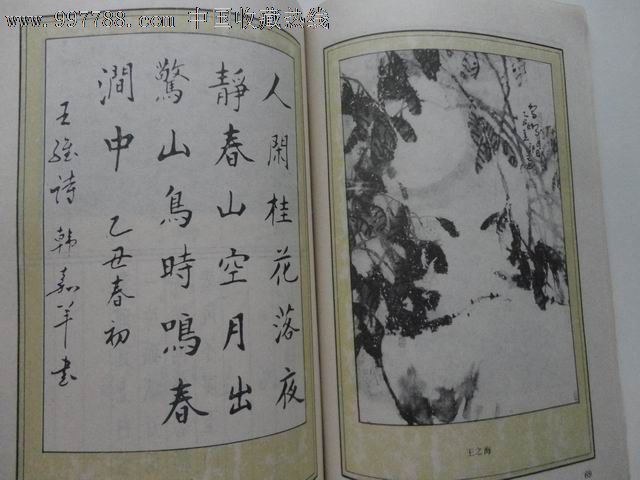 www.997788.com 中国收藏热线
人閑桂花落夜
靜春山空月出
驚山鳥時鳴春
澗中 乙丑春初
王維詩 韓嘉羊書
王之海
69